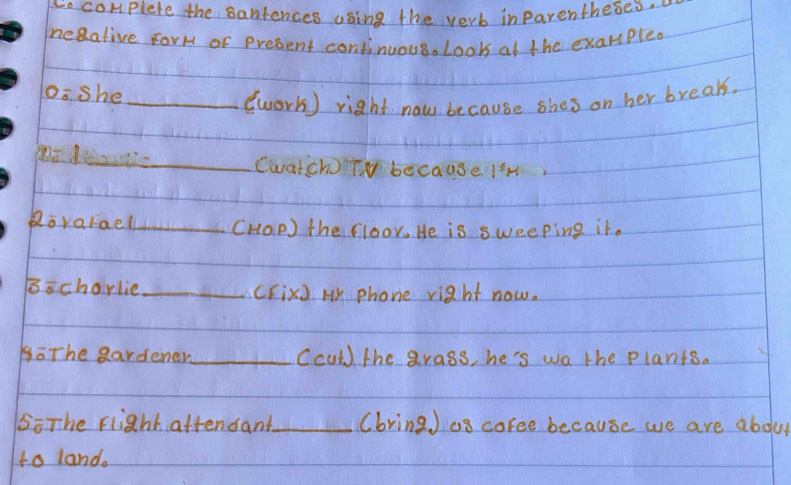 C. complete the santences using the verb in parentheses.
negative form of present continuous. Look at the example.
0. She ______ (work) right now because shes on her break.
______ (watch) TV because I'm
2. rafael ______ (mop) the floor. He is sweeping it.
3. charlie ______ (fix) my phone right now.
4. The gardener ______ (cut) the grass, he's wa the plants.
5. The flight attendant ______ (bring) us cofee because we are about
to land.